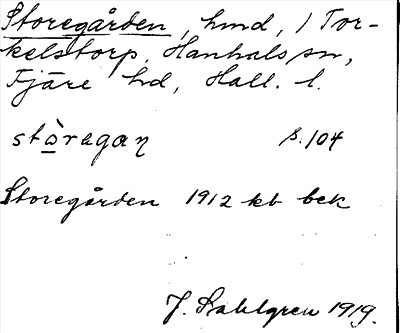 Storegården, hmd, i Tor-
kelstorp, Hanhals sn,
Fjäre hd, Hall. l.
stòragan s. 104
Storegården 1912 kb bek
J. Sahlgren 1919.